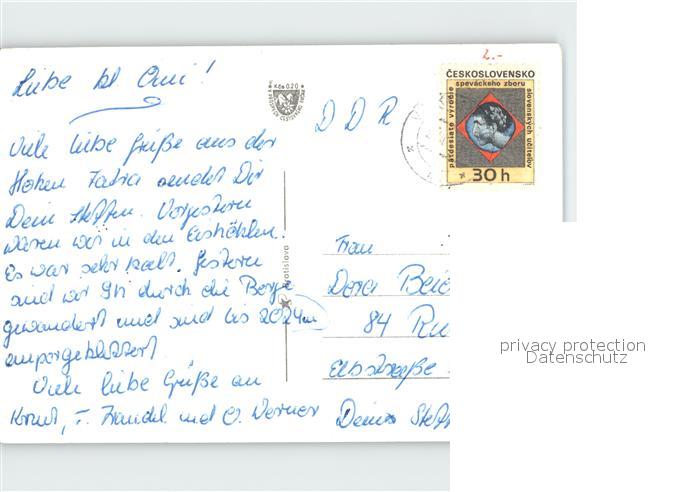 2.-
Liebe kl Omi!
Kčs 0,20
ČESKOSLOVENSKO
päťdesiate výročie speváckeho zboru slovenských učiteľov
30 h
D D R
Viele liebe Grüße aus der
Hohen Tatra sendet Dir
Dein Steffen. Vorgestern
waren wir in den Eishöhlen.
Es war sehr kalt. Gestern
sind wir 9h durch die Berge
gewandert und sind bis 2024m
emporgeklettert.
Viele liebe Grüße an
T. und O. Werner
Dein Steff
Bratislava
Frau
Dora
84 Ru
Elbstraße
privacy protection
Datenschutz